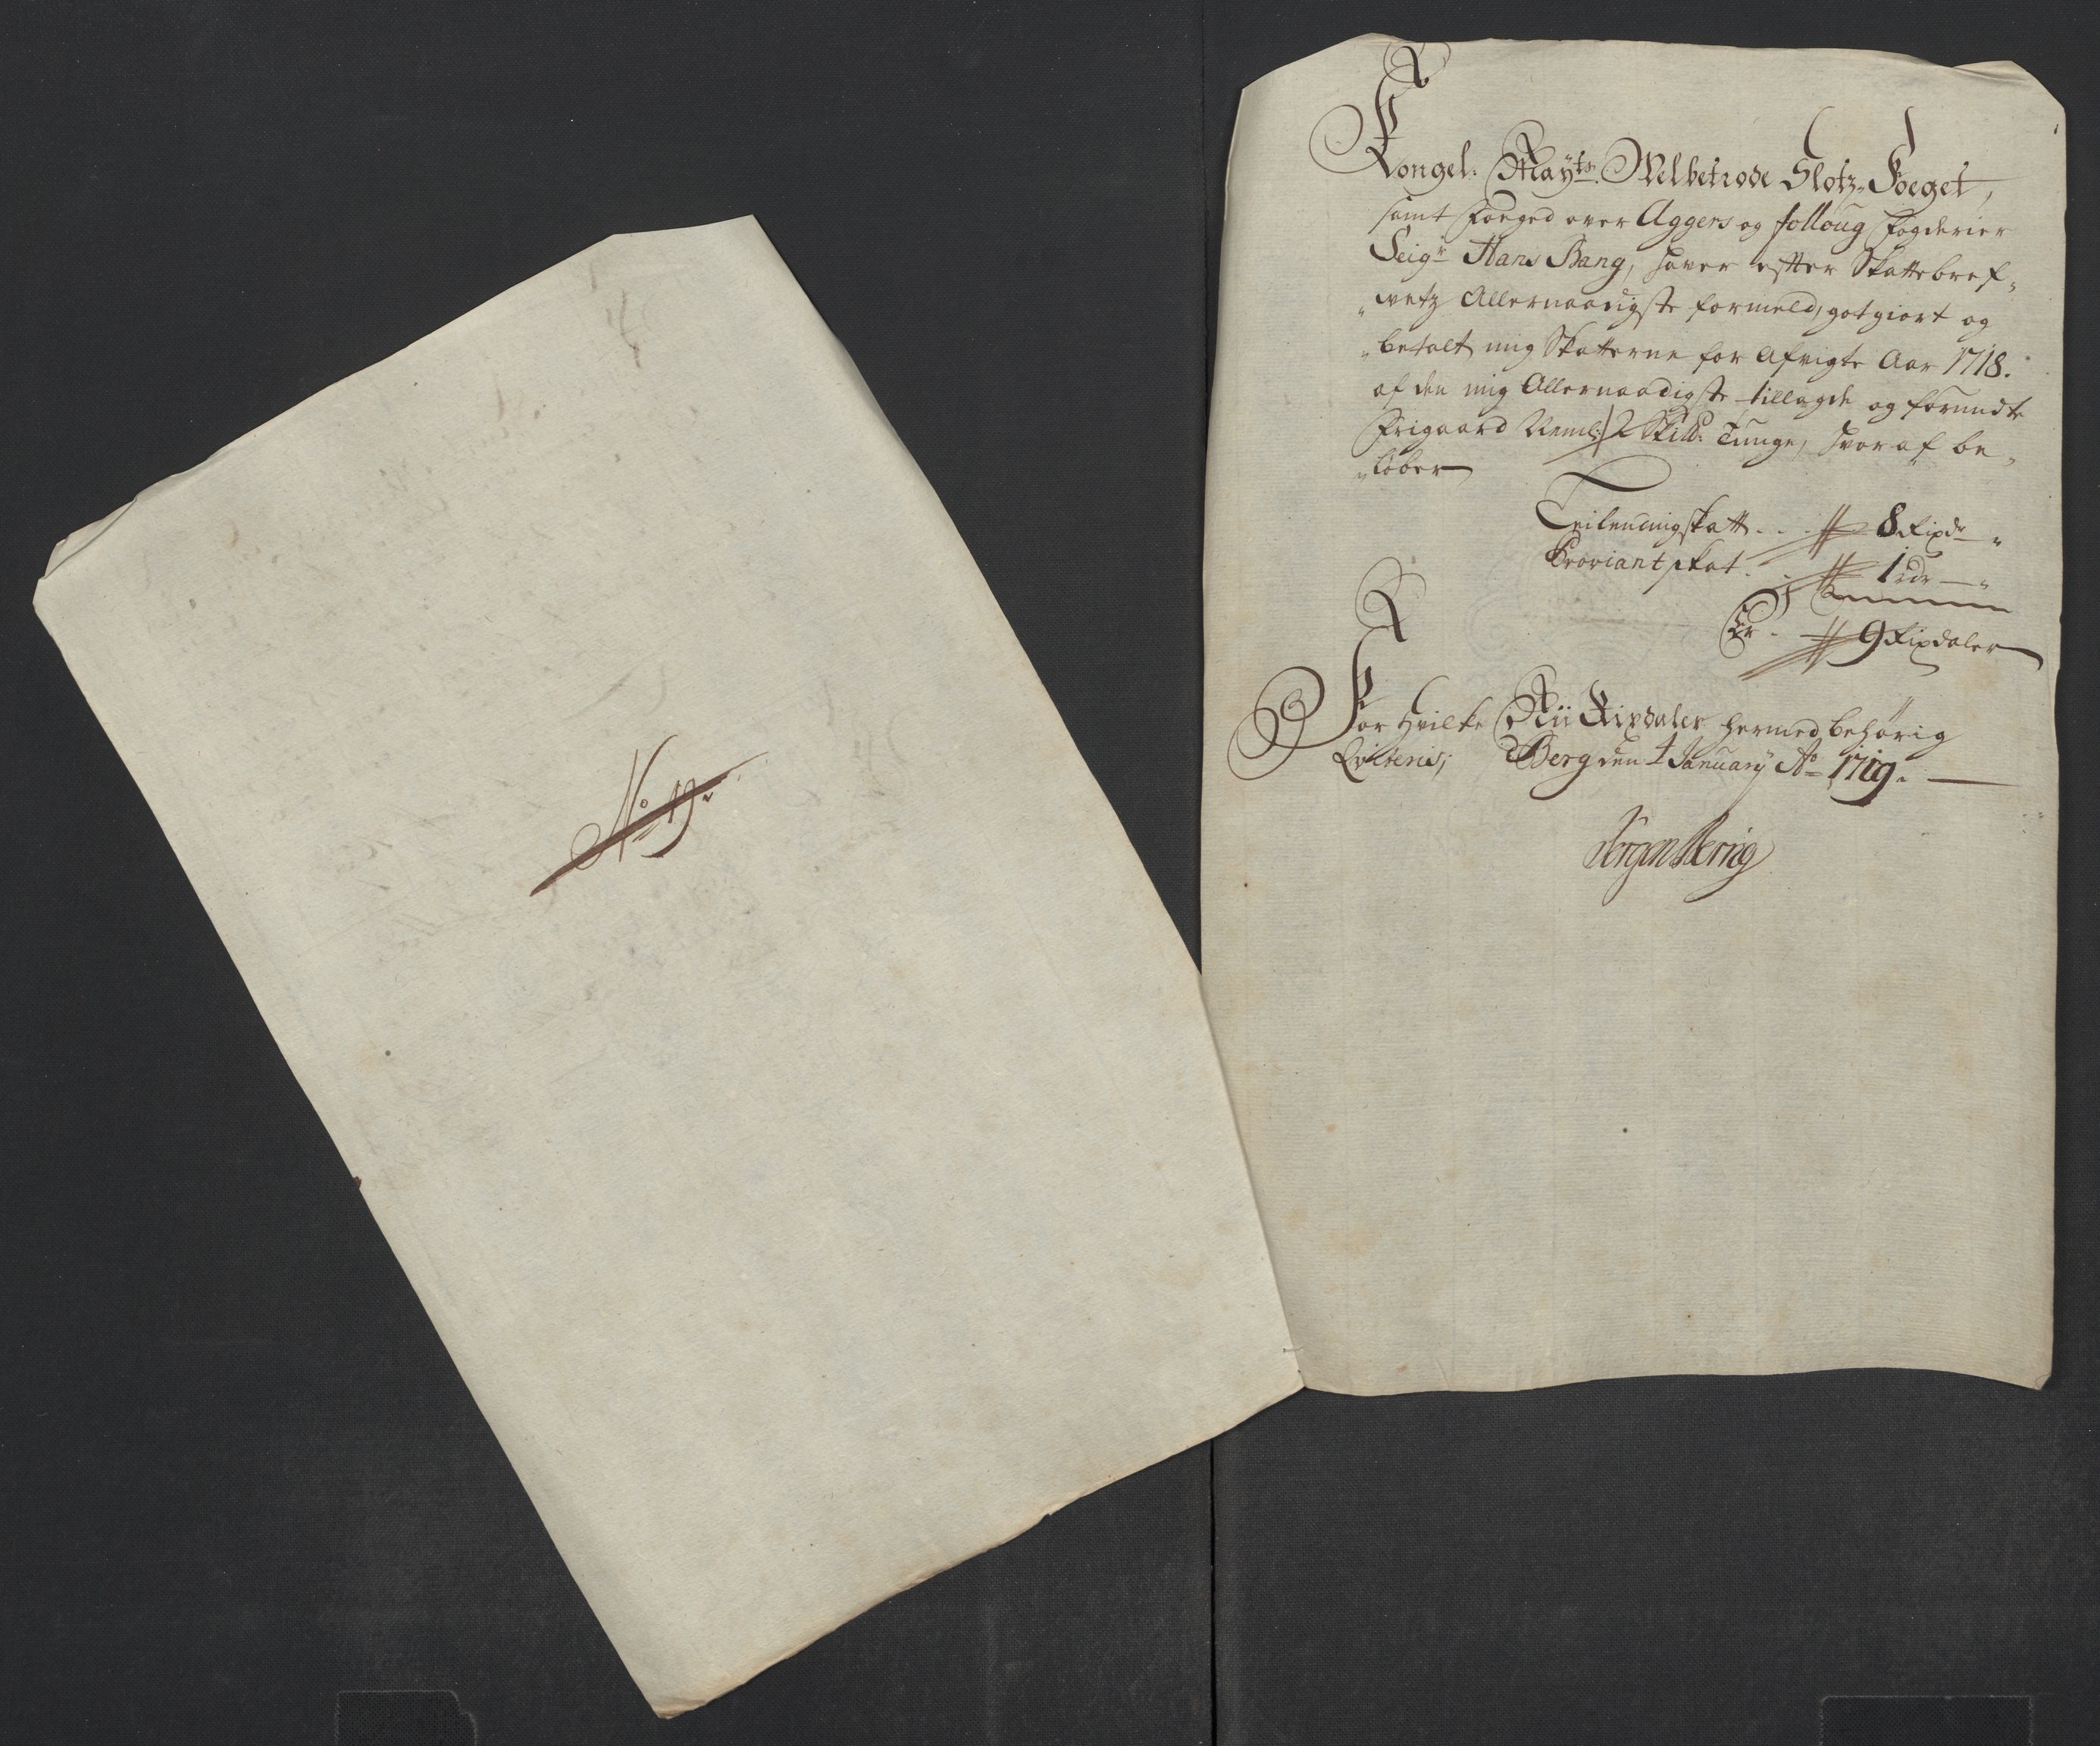 No 19.
Kongel: Mayts. Velbetrode Slotz-Foeget,
samt Foeged over Aggers og folloug fogderier
Seigr Hans Bang, haver efter Skattebref-
"wetz Allernaadigste formeld, gotgiort og
"betalt mig Skatterne for Afvigte Aar 1718.
af den mig Allernaadigste tillagde og forundte
Frigaard Neml: 2 Skibd: Tunge, hvoraf be-
"løber
skatt . . . 8 Rixdr "
Proviantskat . . 1 rdr — "
Er . 9 Rixdaler
For hvilke Nii Rixdaler hermed behørig
Qvitteris; Berg den 4 January Ao 1719. —
Jørgen